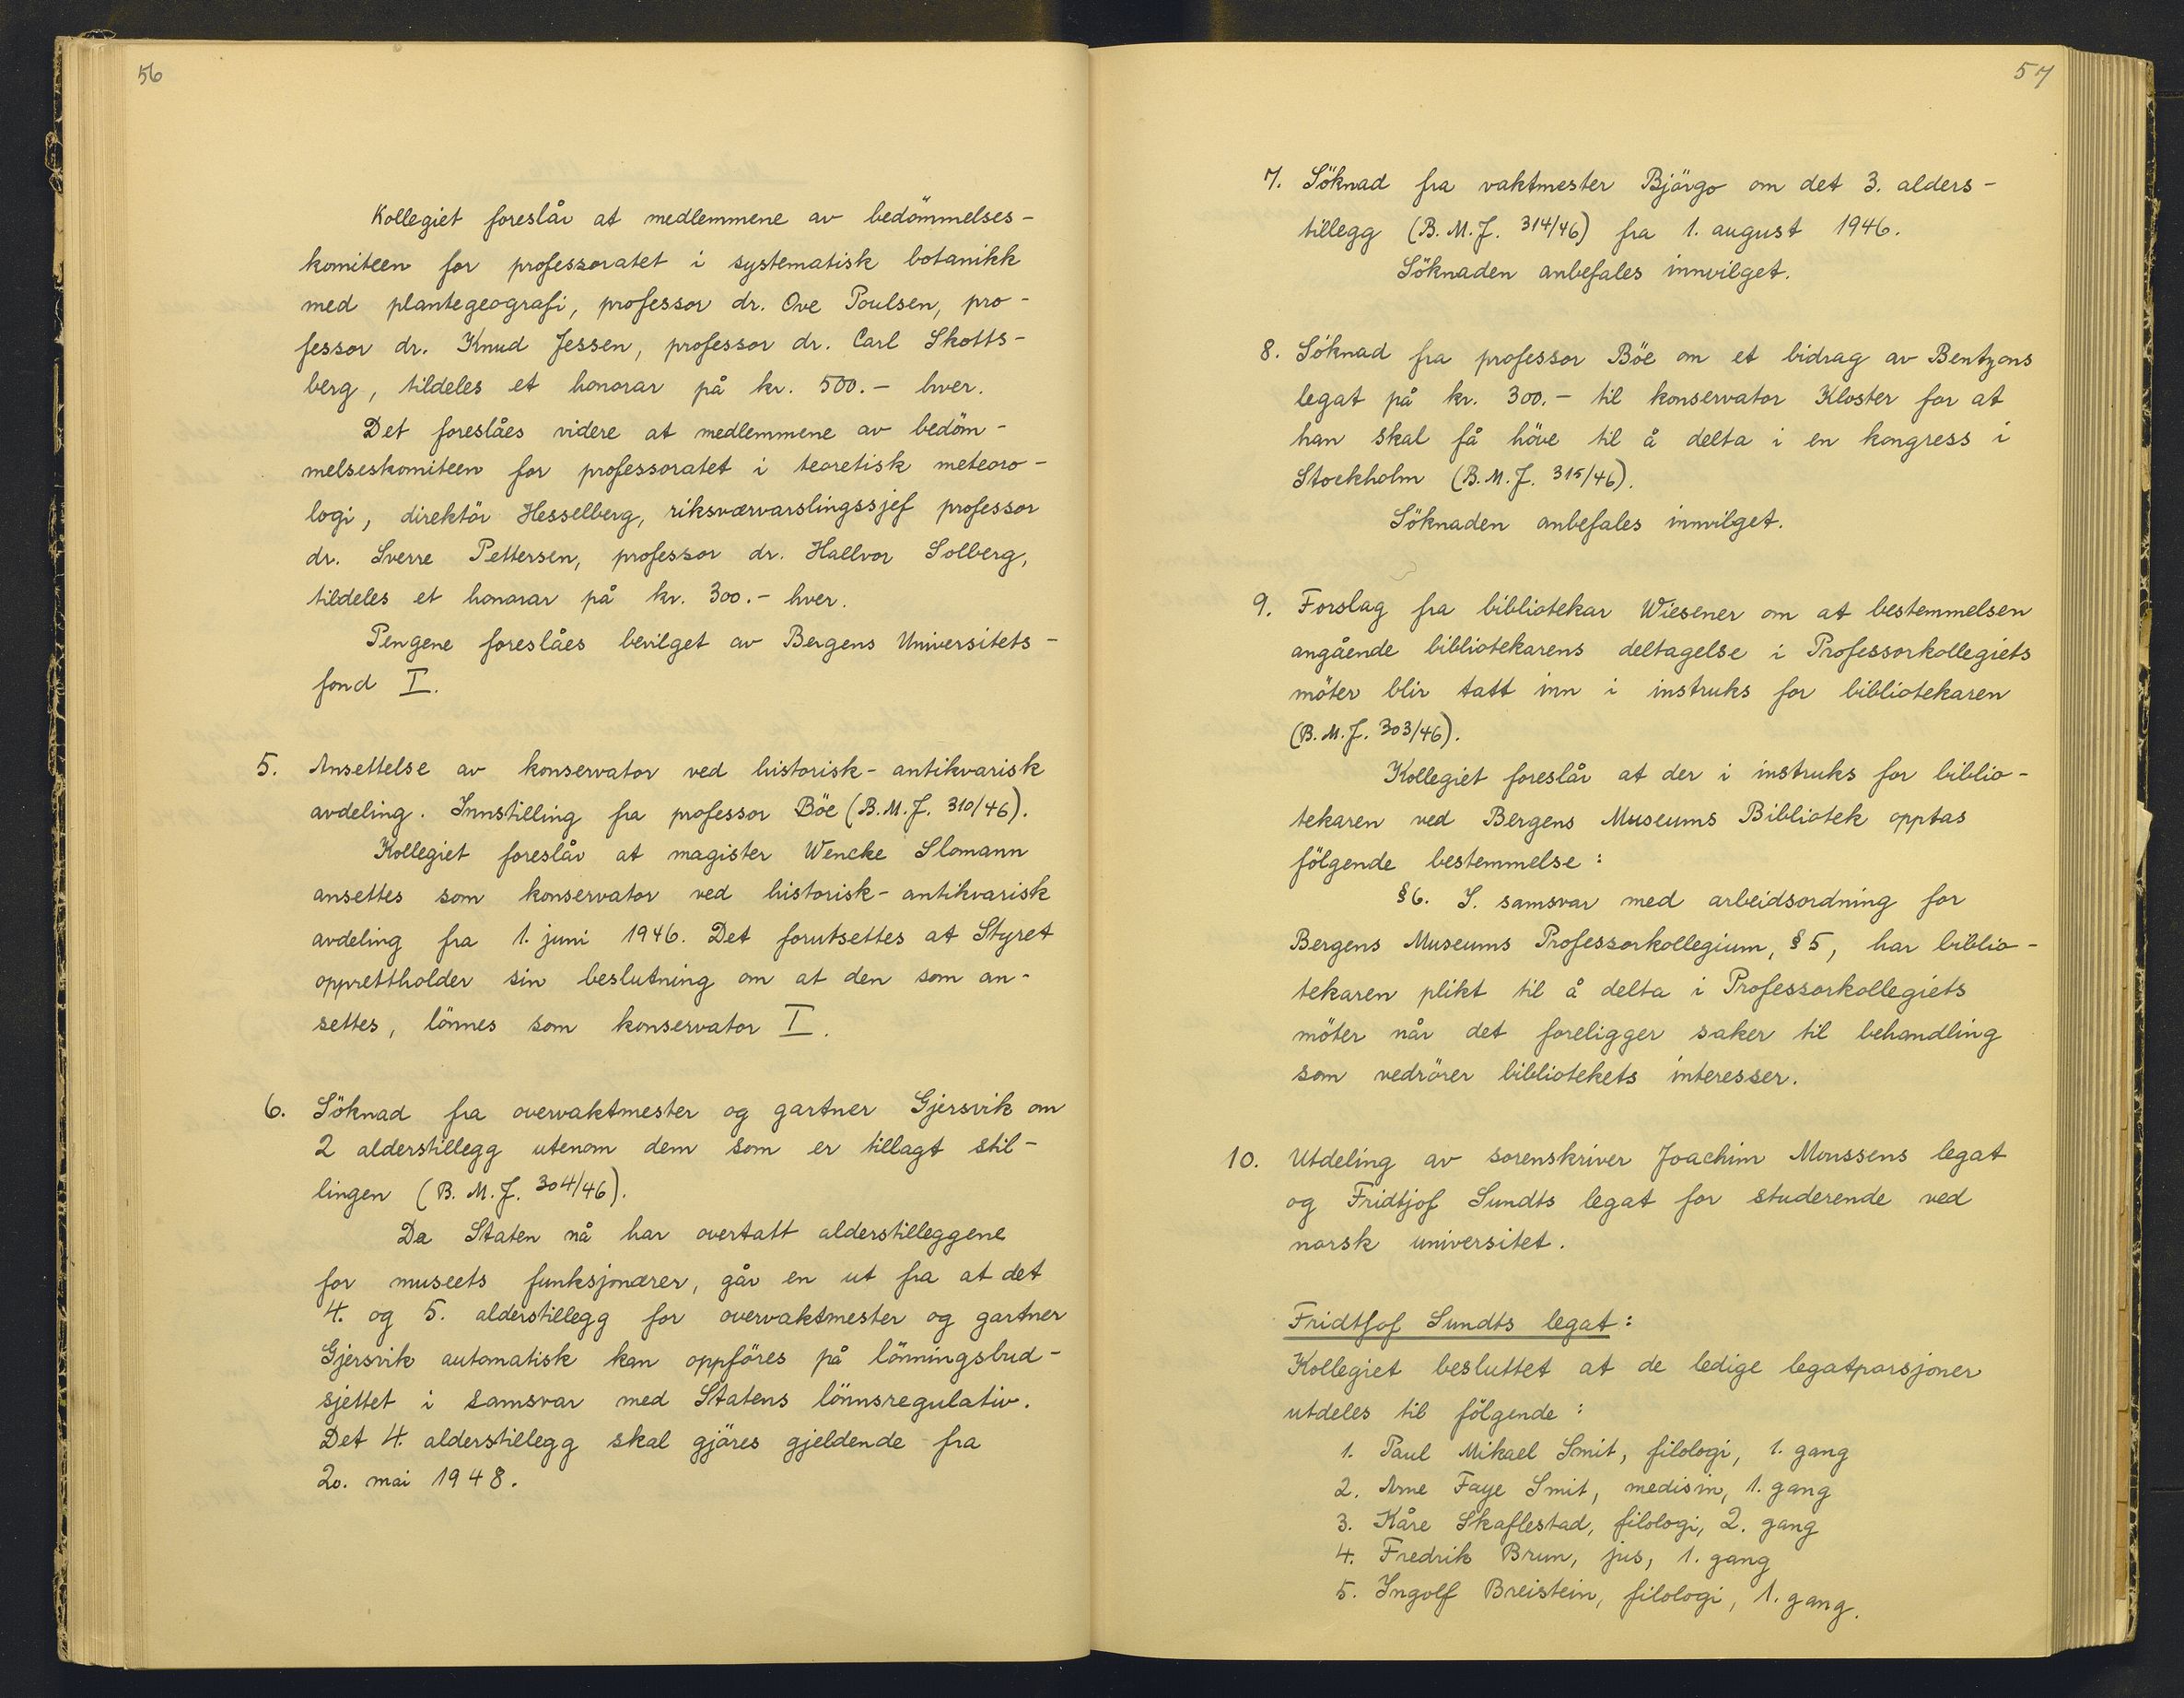 56
Kollegiet foreslår at medlemmene av bedömmelses-
komiteen for professoratet i systematisk botanikk
med plantegeografi, professor dr. Ove Poulsen, pro-
fessor dr. Knud Jessen, professor dr. Carl Skotts-
berg, tildeles et honorar på kr. 500.- hver.
Det foreslåes videre at medlemmene av bedöm-
melseskomiteen for professoratet i teoretisk meteoro-
logi, direktör Hesselberg, riksværvarslingssjef professor
dr. Sverre Pettersen, professor dr. Hallvor Solberg,
tildeles et honorar på kr. 300.- hver.
Pengene foreslåes bevilget av Bergens Universitets-
fond I.
5. Ansettelse av konservator ved historisk-antikvarisk
avdeling. Innstilling fra professor Böe (B.M.J. 310/46).
Kollegiet foreslår at magister Wencke Slomann
ansettes som konservator ved historisk-antikvarisk
avdeling fra 1. juni 1946. Det forutsettes at Styret
opprettholder sin beslutning om at den som an-
settes, lönnes som konservator I.
6. Söknad fra overvaktmester og gartner Gjersvik om
2 alderstillegg utenom dem som er tillagt stil-
lingen (B.M.J. 304/46).
Da Staten nå har overtatt alderstilleggene
for museets funksjonærer, går en ut fra at det
4. og 5. alderstillegg for overvaktmester og gartner
Gjersvik automatisk kan oppföres på lönningsbud-
sjettet i samsvar med Statens lönnsregulativ.
Det 4. alderstillegg skal gjöres gjeldende fra
20. mai 1948.
57
7. Söknad fra vaktmester Bjärgo om det 3. alders-
tillegg (B.M.J. 314/46) fra 1. august 1946.
Söknaden anbefales innvilget.
8. Söknad fra professor Böe om et bidrag av Bentzons
legat på kr. 300.- til konservator Kloster for at
han skal få höve til å delta i en kongress i
Stockholm (B.M.J. 315/46).
Söknaden anbefales innvilget.
9. Forslag fra bibliotekar Wiesener om at bestemmelsen
angående bibliotekarens deltagelse i Professorkollegiets
möter blir tatt inn i instruks for bibliotekaren
(B.M.J. 303/46).
Kollegiet foreslår at der i instruks for biblio-
tekaren ved Bergens Museums Bibliotek opptas
fölgende bestemmelse:
§6. I. samsvar med arbeidsordning for
Bergens Museums Professorkollegium, §5, har biblio-
tekaren plikt til å delta i Professorkollegiets
möter når det foreligger saker til behandling
som vedrörer bibliotekets interesser.
10. Utdeling av sorenskriver Joachim Monssens legat
og Fridtjof Sundts legat for studerende ved
norsk universitet.
Fridtjof Sundts legat:
Kollegiet besluttet at de ledige legatporsjoner
utdeles til fölgende:
1. Paul Mikael Smit, filologi, 1. gang
2. Arne Faye Smit, medisin, 1. gang
3. Kåre Skaflestad, filologi, 2. gang
4. Fredrik Brun, jus, 1. gang
5. Ingolf Breistein, filologi, 1. gang.